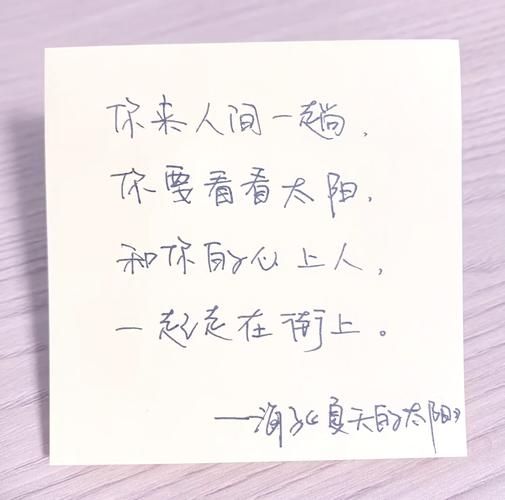 你来人间一趟，
你要看看太阳，
和你的心上人，
一起走在街上。
——海子《夏天的太阳》